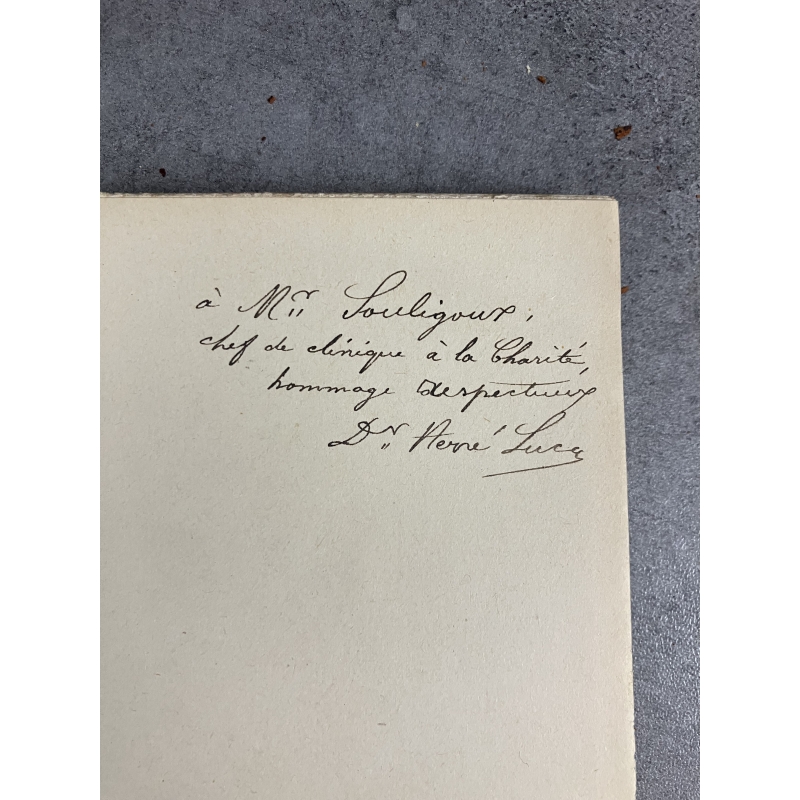 à Mr Souligoux,
chef de clinique à la Charité,
hommage respectueux
Dr Hervé Luca